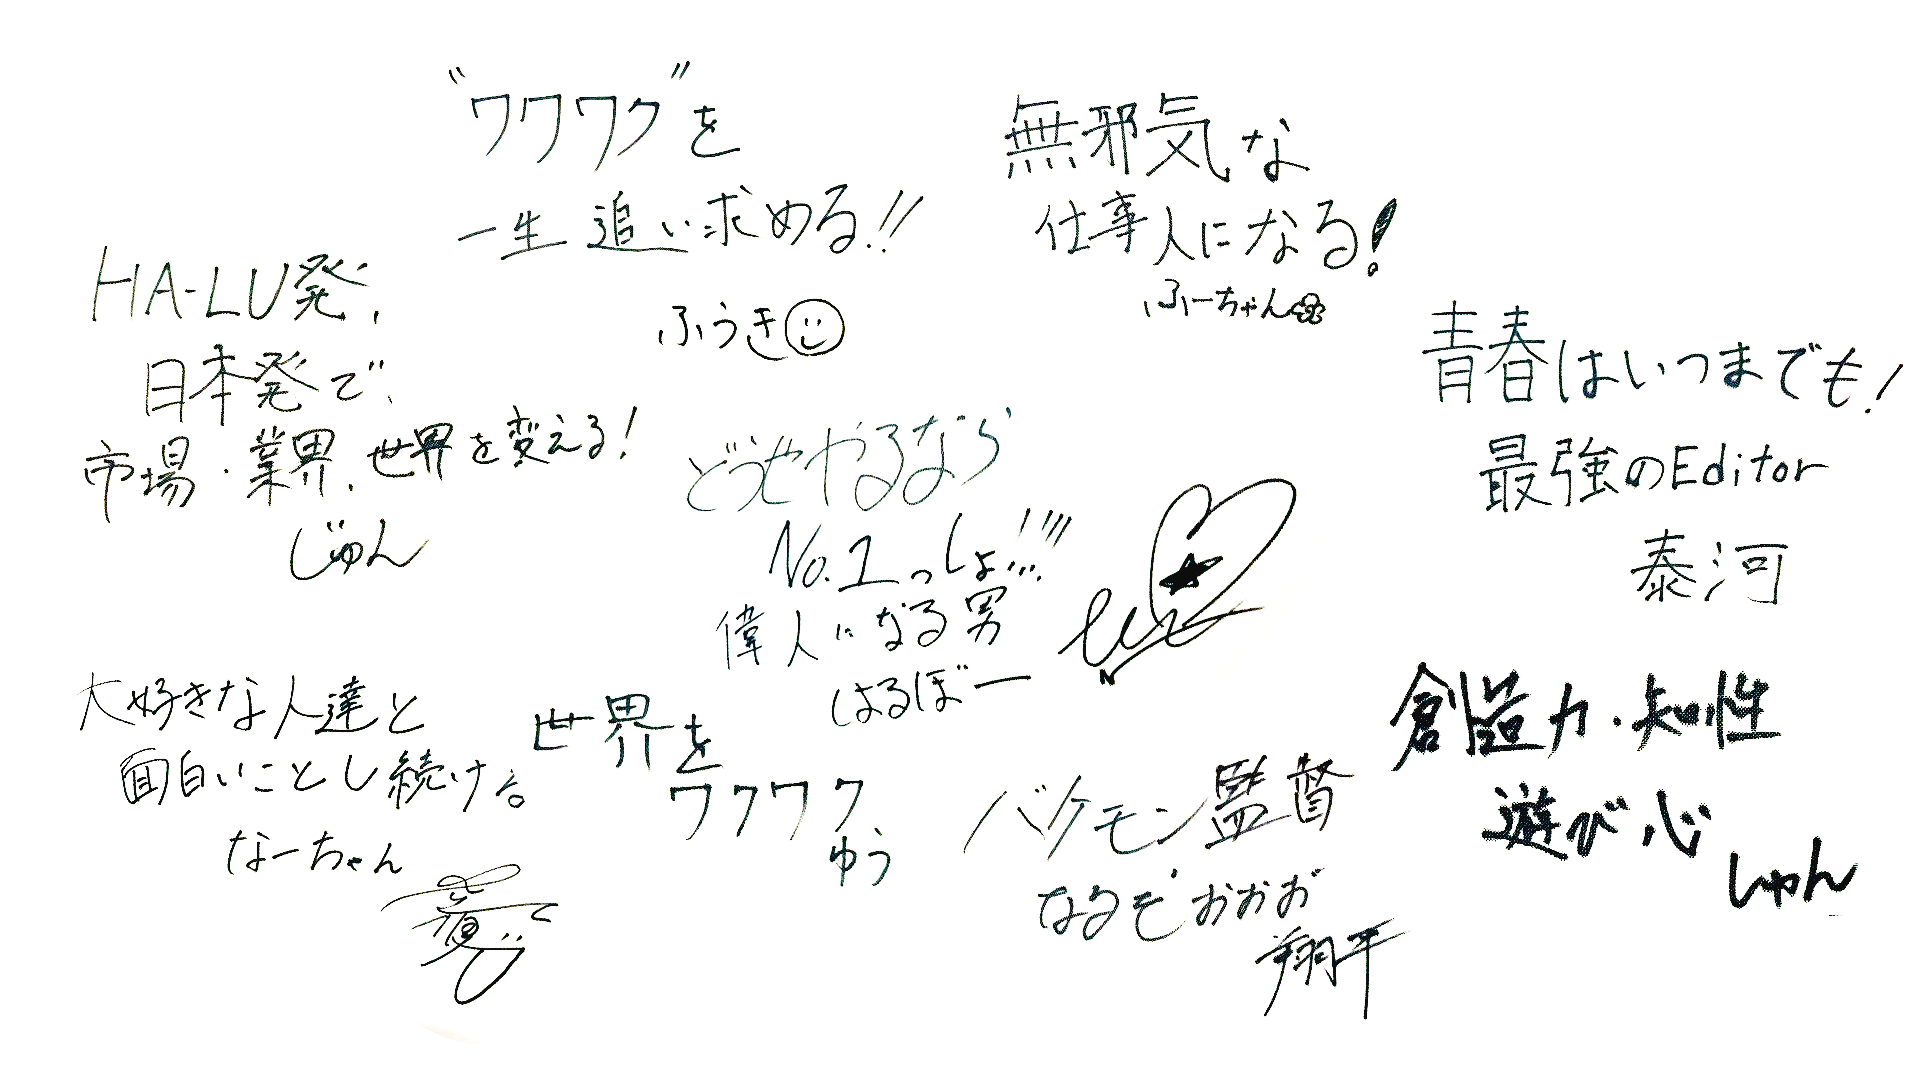 "ワクワク"を
一生追い求める!!
ふうき
無邪気な
仕事人になる!
ふーちゃん
HA-LU発、
日本発で、
市場・業界、世界を変える!
じゅん
青春はいつまでも!
最強のEditor
泰河
どうせやるなら
No.1っしょ!!!!
偉人になる男
はるぼー
大好きな人達と
面白いことし続ける。
なーちゃん
世界を
ワクワク
ゆう
バケモン監督
なるぞおおお
翔平
創造力・知性
遊び心
しゅん